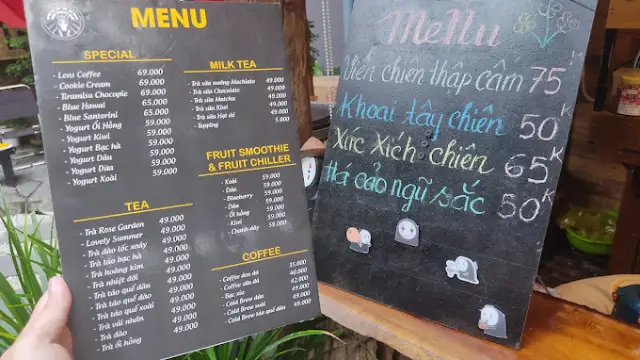 MENU
SPECIAL
- Lens Coffee 69.000
- Cookie Cream 59.000
- Tiramisu Chocopie 69.000
- Blue Hawai 65.000
- Blue Santorini 65.000
- Yogurt Ổi Hồng 59.000
- Yogurt Kiwi 59.000
- Yogurt Bạc hà 59.000
- Yogurt Dâu 59.000
- Yogurt Dừa 59.000
- Yogurt Xoài 59.000
TEA
- Trà Rose Garden 49.000
- Lovely Summer 49.000
- Trà đào lốc xoáy 49.000
- Trà táo bạc hà 49.000
- Trà hoàng kim 49.000
- Trà nhiệt đới 49.000
- Trà táo quế dâu 49.000
- Trà táo quế đào 49.000
- Trà táo quế xoài 49.000
- Trà vải nhãn 49.000
- Trà đào 49.000
- Trà ổi hồng 49.000
MILK TEA
- Trà sữa nướng Machiato 49.000
- Trà sữa Chocolate 49.000
- Trà sữa Matcha 49.000
- Trà sữa Kiwi 49.000
- Trà sữa Hạt dẻ 49.000
- Topping 5.000
FRUIT SMOOTHIE
& FRUIT CHILLER
- Xoài 59.000
- Dâu 59.000
- Blueberry 59.000
- Dừa 59.000
- Ổi hồng 59.000
- Kiwi 59.000
- Chanh dây 59.000
COFFEE
- Coffee đen đá 35.000
- Coffee sữa đá 40.000
- Bạc xỉu 42.000
- Cold Brew dâu 49.000
- Cold Brew xoài 49.000
- Cold Brew táo quế dâu 49.000
MeNu
Viên chiên thập cẩm 75K
Khoai tây chiên 50K
Xúc Xích chiên 65K
Há cảo ngũ sắc 50K